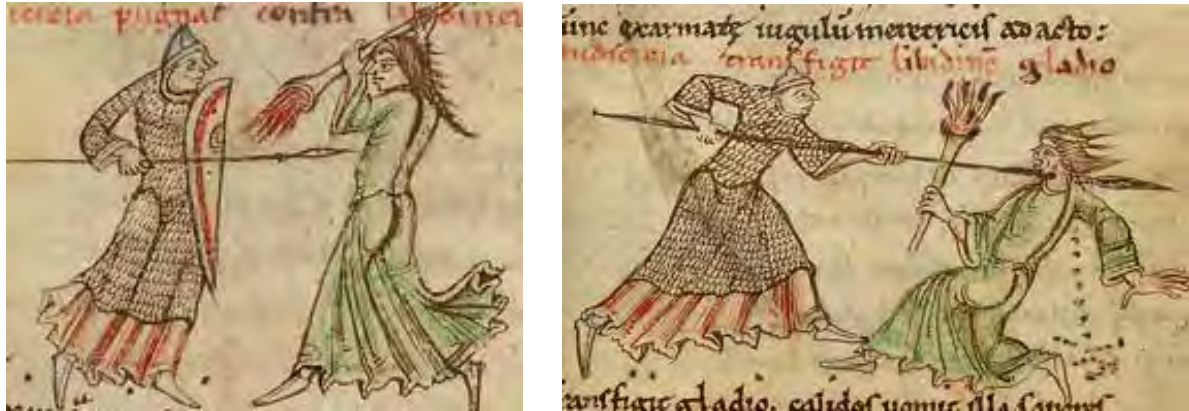 pugnat contra
unc exarmatę iugulū meretricis adacto:
transfigit libidinē gladio
transfigit gladio. calidos uomit illa